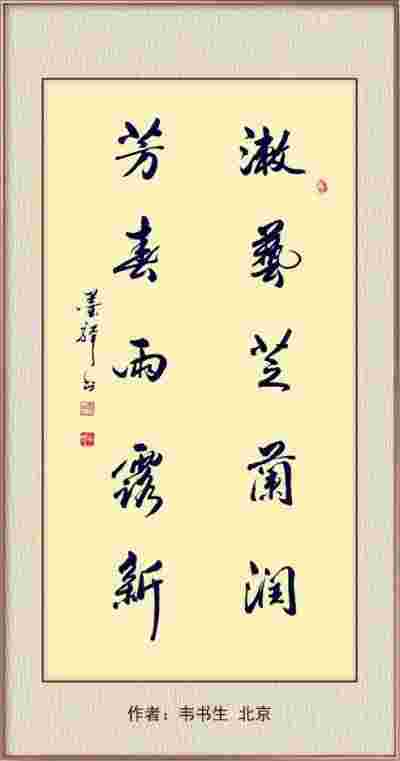 漱藝芝蘭润
芳春雨露新
作者：韦书生 北京